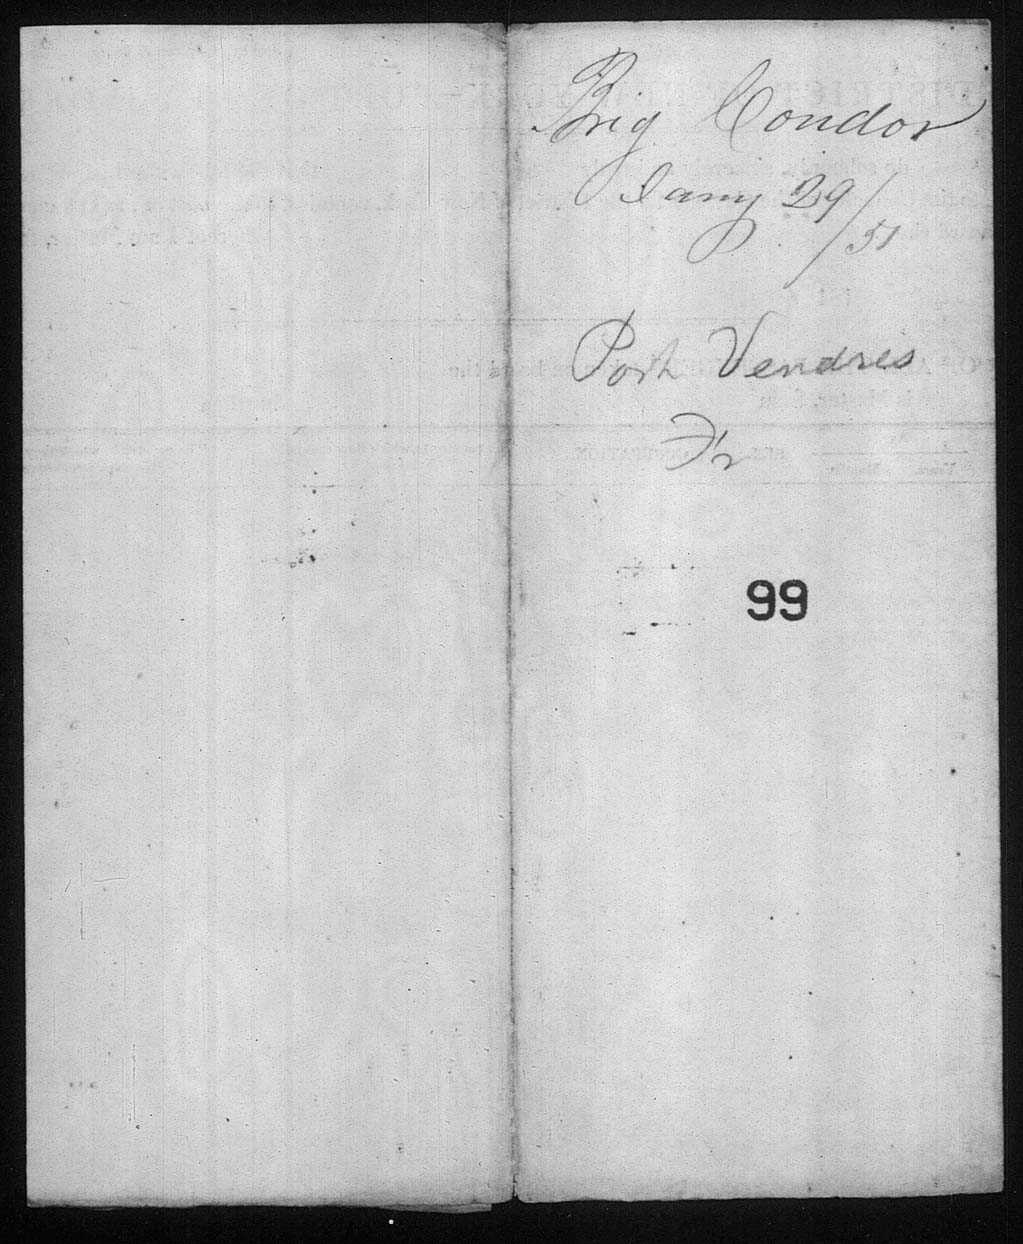 Brig Condor
Jany 29/51
Port Vendres
Fr
99